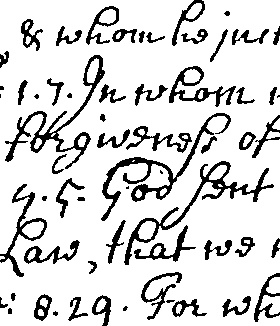 & whom he just
: 1. 7. In whom
forgiveness of
4. 5. God sent
Law, that we
: 8. 29. For wh